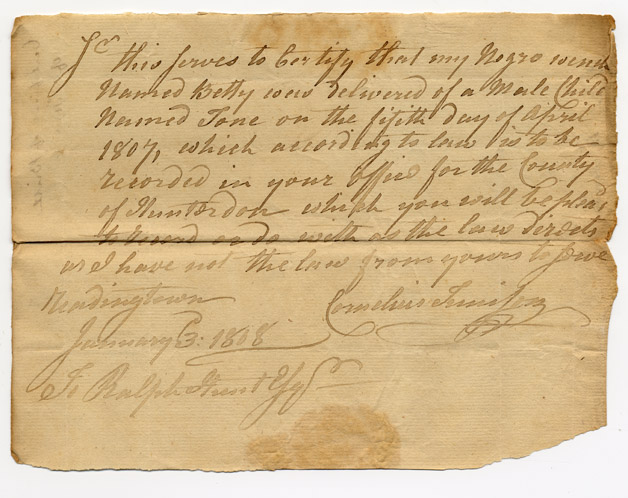 Sr this serves to Certify that my Negro wench
Named Betty was delivered of a Male Child
Named Tone on the fifth day of April
1807, which according to law is to be
recorded in your office for the County
of Hunterdon which you will be pleas
to record or do with as the law directs
as I have not the law from yours to serve
Readingtown
Cornelius
January 3: 1808
To Ralph Hunt Esqr